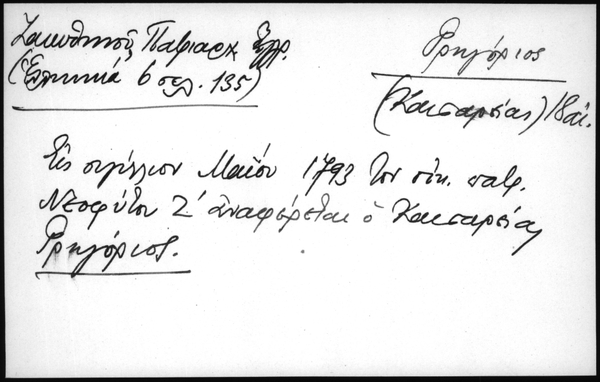 Ζακυθηνοῦ, Πατριαρχ. Ἔγγρ.
(Ἑλληνικά 6 σελ. 135)
Γρηγόριος
(Καισαρείας) 18 αἰ.
Εἰς σιγίλλιον Μαΐου 1793 τοῦ οἰκ. πατρ.
Νεοφύτου Ζ' ἀναφέρεται ὁ Καισαρείας
Γρηγόριος.